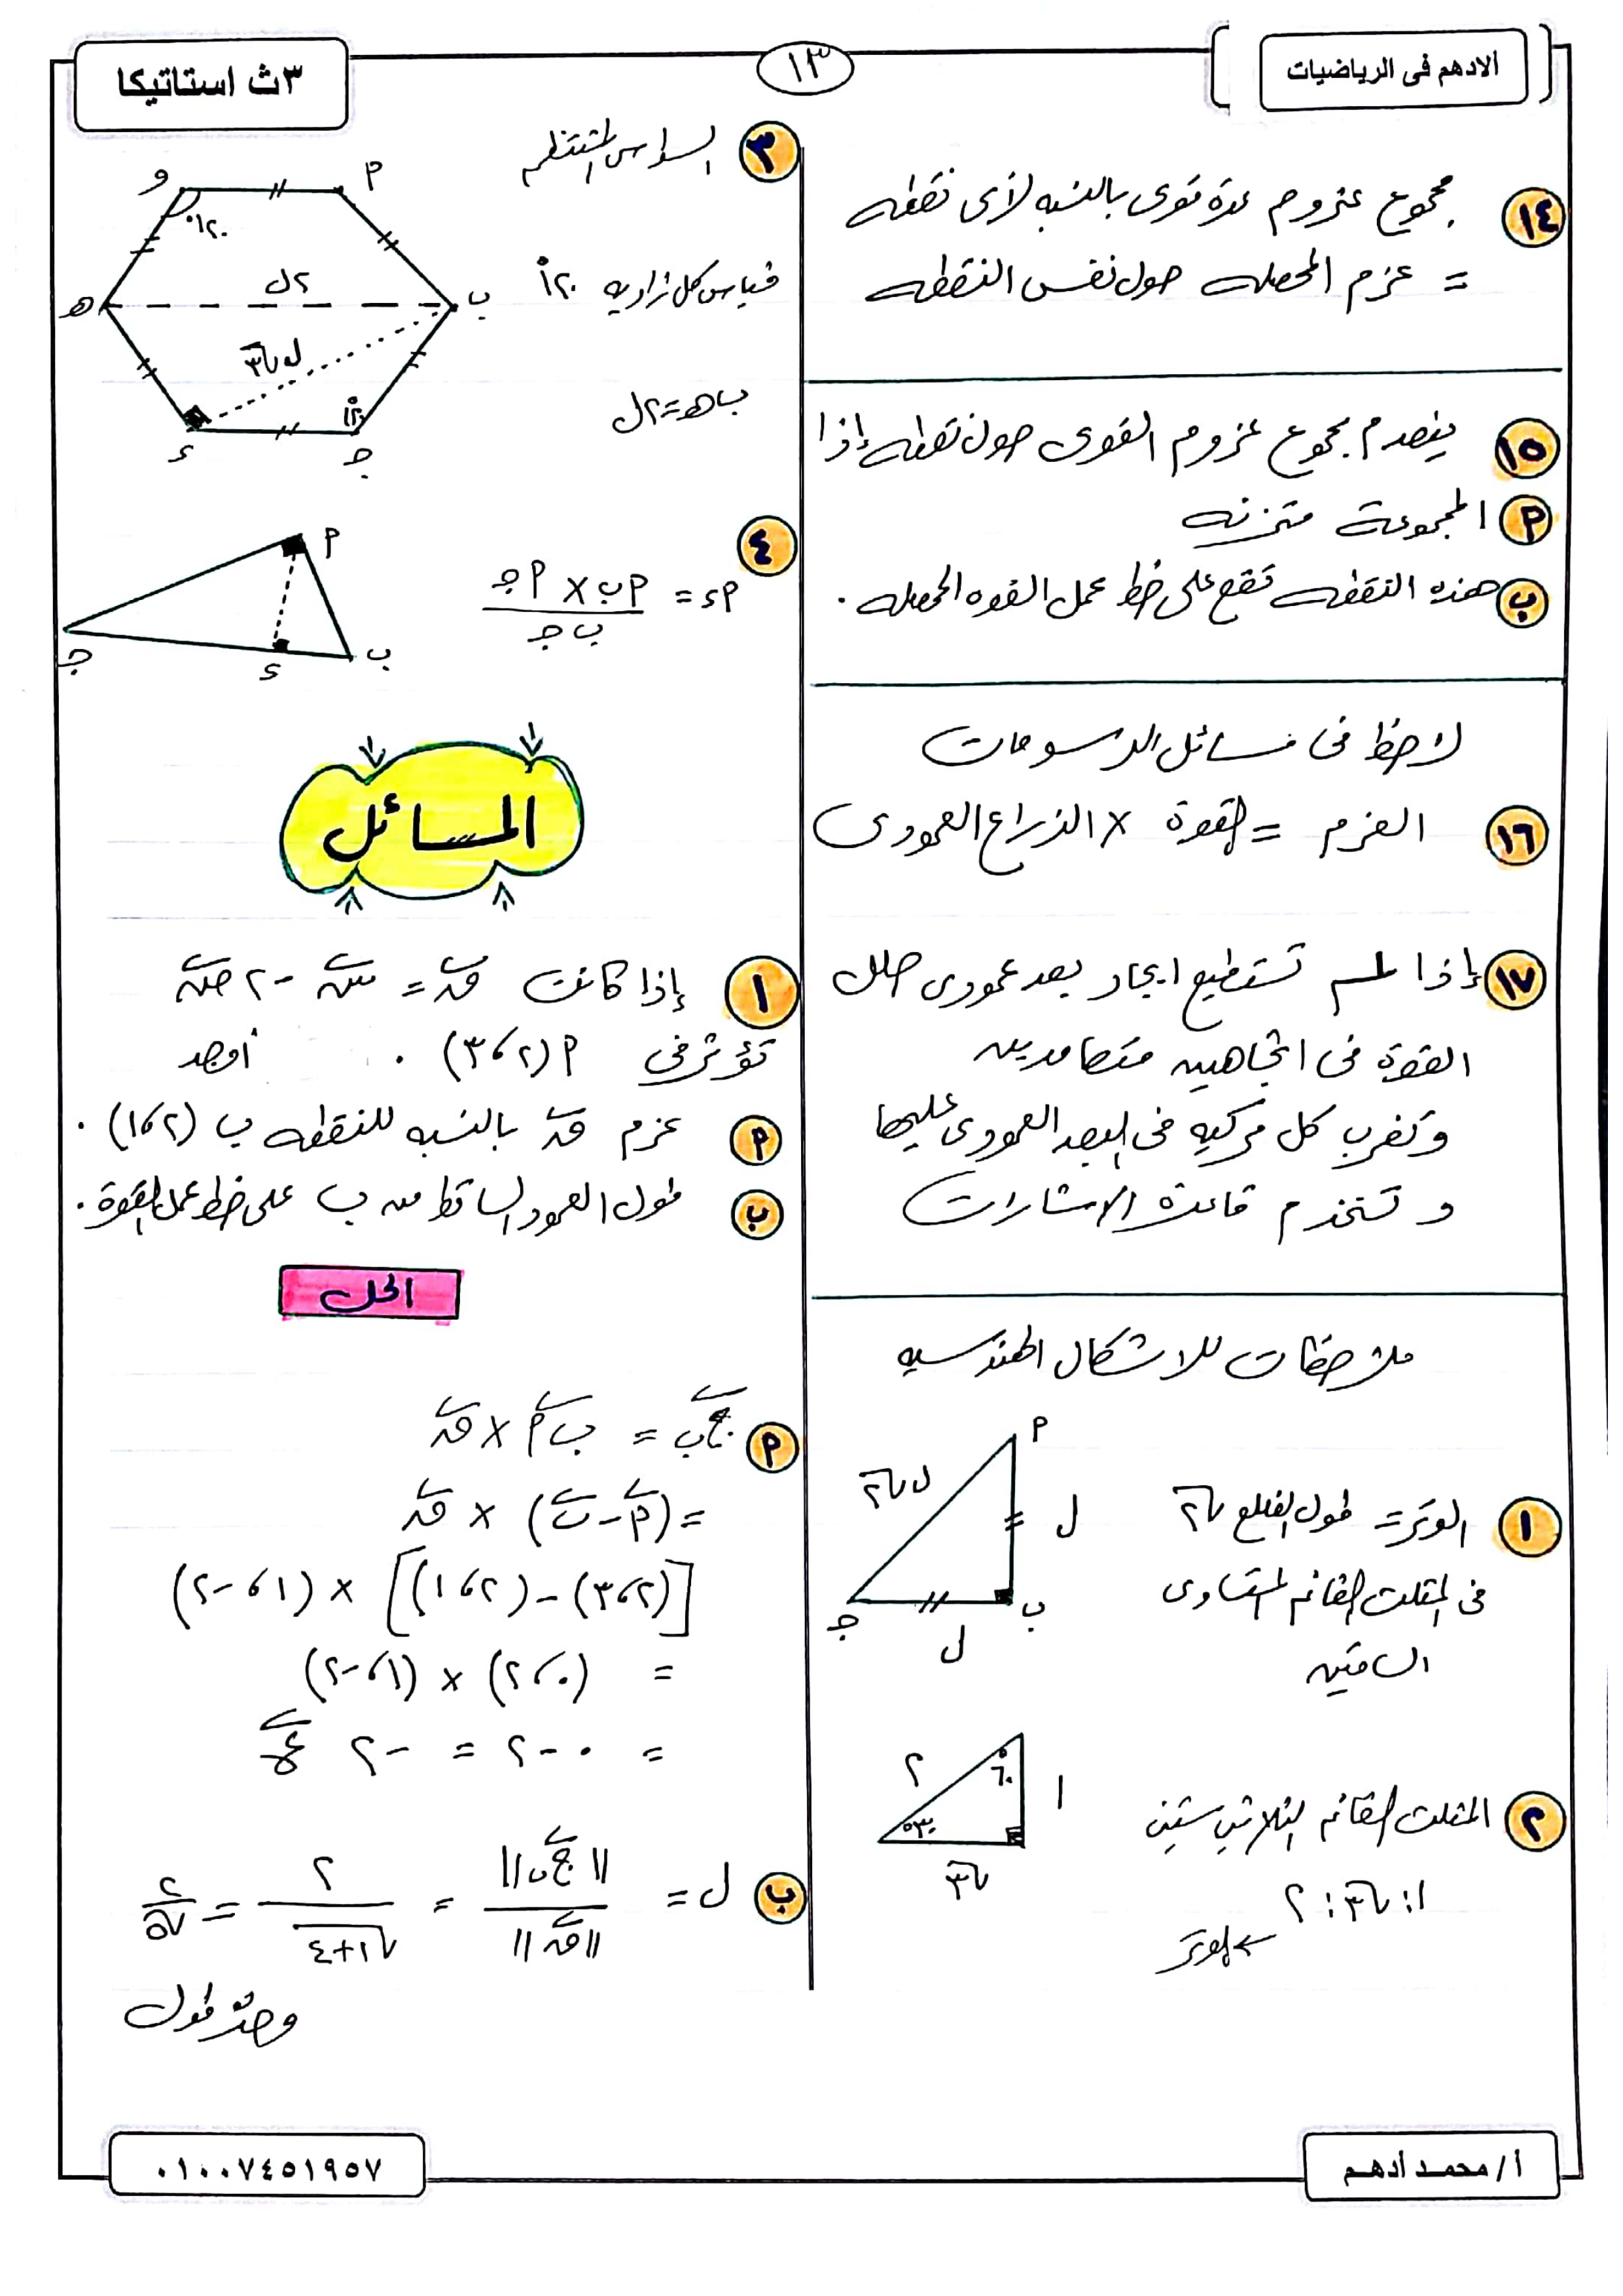 الادهم فى الرياضيات
١٣
٣ث استاتيكا
١٤ مجموع عزوم عدة قوى بالنسبه لأى نقطه
= عزم المحصله حول نفس النقطه
١٥ ينعدم مجموع عزوم القوى حول نقطه إذا
أ المجموعة متزنه
ب هذه النقطه تقع على خط عمل القوه المحصله .
لاحظ فى مسائل الرسومات
١٦ العزم = القوة × الذراع العمودى
١٧ إذا لم تستطيع ايجاد بعد عمودى حلل
القوة فى اتجاهين متعامدين
وتضرب كل مركبه فى البعد العمودى عليها
و تستخدم قاعدة الاشارات
ملاحظات للاشكال الهندسيه
١ الوتر = طول الضلع √٢
فى المثلث القائم المتساوى
الساقين
أ
ل√٢
ل
ب
جـ
ل
٢ المثلث القائم الثلاثينى ستينى
١ : √٣ : ٢
← الوتر
٢
٦٠°
١
٣٠°
√٣
٣ السداسى المنتظم
قياس كل زاويه ١٢٠°
ب هـ = ٢ل
أ
و
١٢٠°
٢ل
ب
هـ
ل√٣
١٢٠°
جـ
ء
٤ أء = أب × أجـ / ب جـ
أ
ب
ء
جـ
المسائل
١ إذا كانت ق = س - ٢ ص
تؤثر فى أ (٢، ٣) . أوجد
أ عزم ق بالنسبه للنقطه ب (٢، ١) .
ب طول العمود الساقط من ب على خط عمل القوة .
الحل
أ جـ ب = ب أ × ق
= (أ - ب) × ق
[(٢، ٣) - (٢، ١)] × (١، -٢)
= (٠، ٢) × (١، -٢)
= ٠ - ٢ = -٢ ع
ب ل = ||جـ ب|| / ||ق|| = ٢ / √(١+٤) = ٢ / √٥
وحدة طول
أ/ محمد أدهم
٠١٠٠٧٤٥١٩٥٧